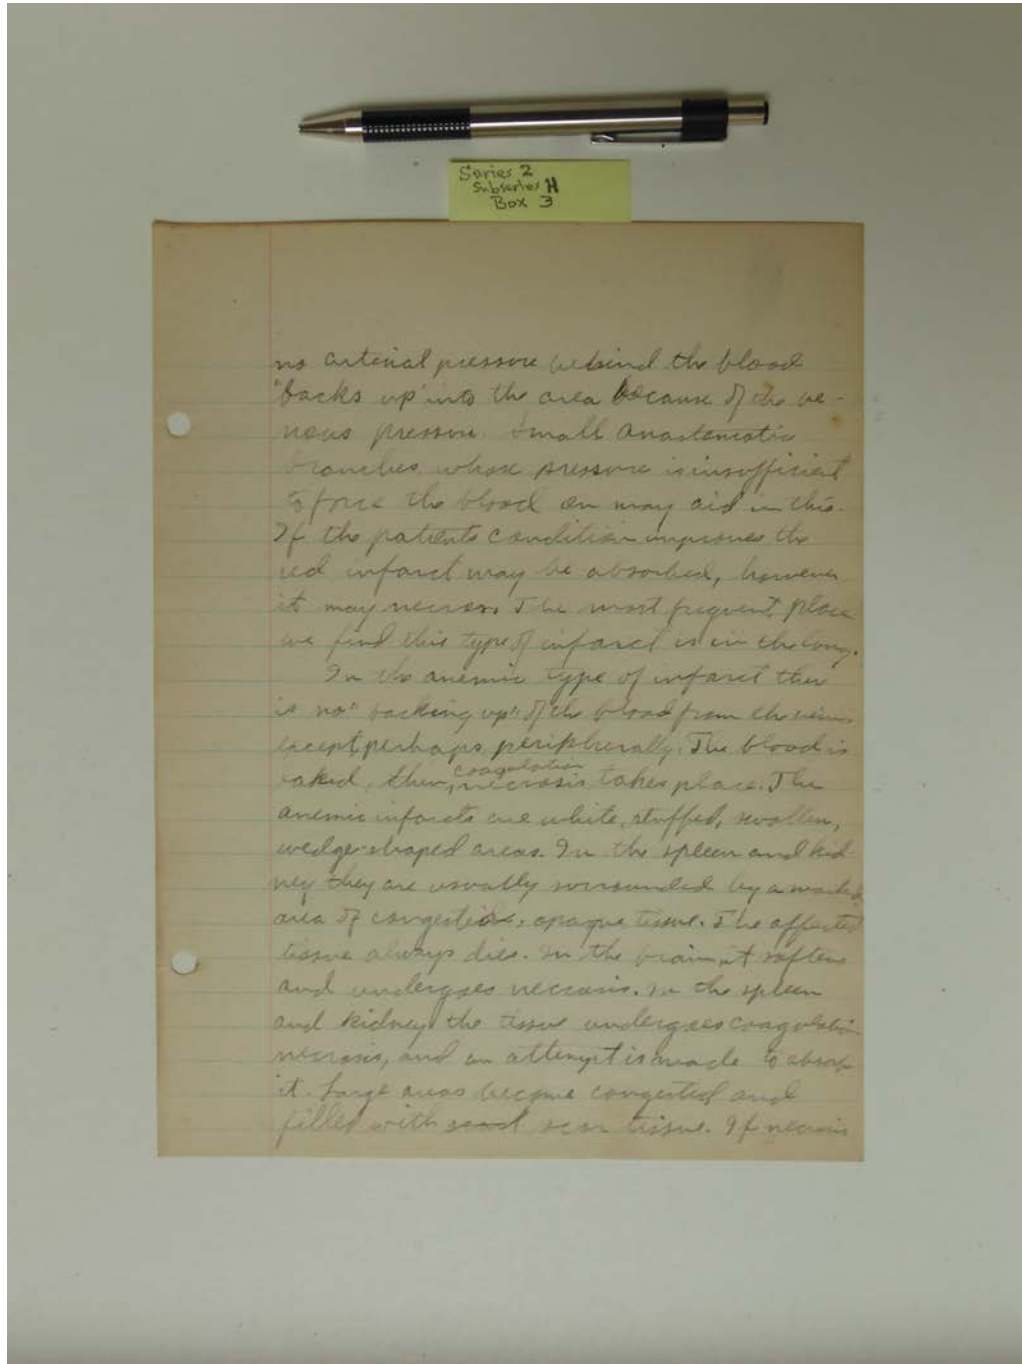 Series 2
Subseries H
Box 3
no arterial pressure behind the blood
"backs up" into the area because of the ve-
nous pressure. Small anastomotic
branches whose pressure is insufficient
to force the blood on may aid in this.
If the patients condition improves the
red infarct may be absorbed, however
it may necrose. The most frequent place
we find this type of infarct is in the lung.
In the anemic type of infarct there
is no "backing up" of the blood from the veins
except, perhaps, peripherally. The blood is
then, coagulation necrosis takes place. The
anemic infarcts are white, stuffed, swollen,
wedge-shaped areas. In the spleen and kid-
ney they are usually surrounded by a marked
area of congested, opaque tissue. The affected
tissue always dies. In the brain it softens
and undergoes necrosis. In the spleen
and kidney the tissue undergoes coagulation
necrosis, and an attempt is made to absorb
it. Large areas become congested and
filled with scar tissue. If necrosis